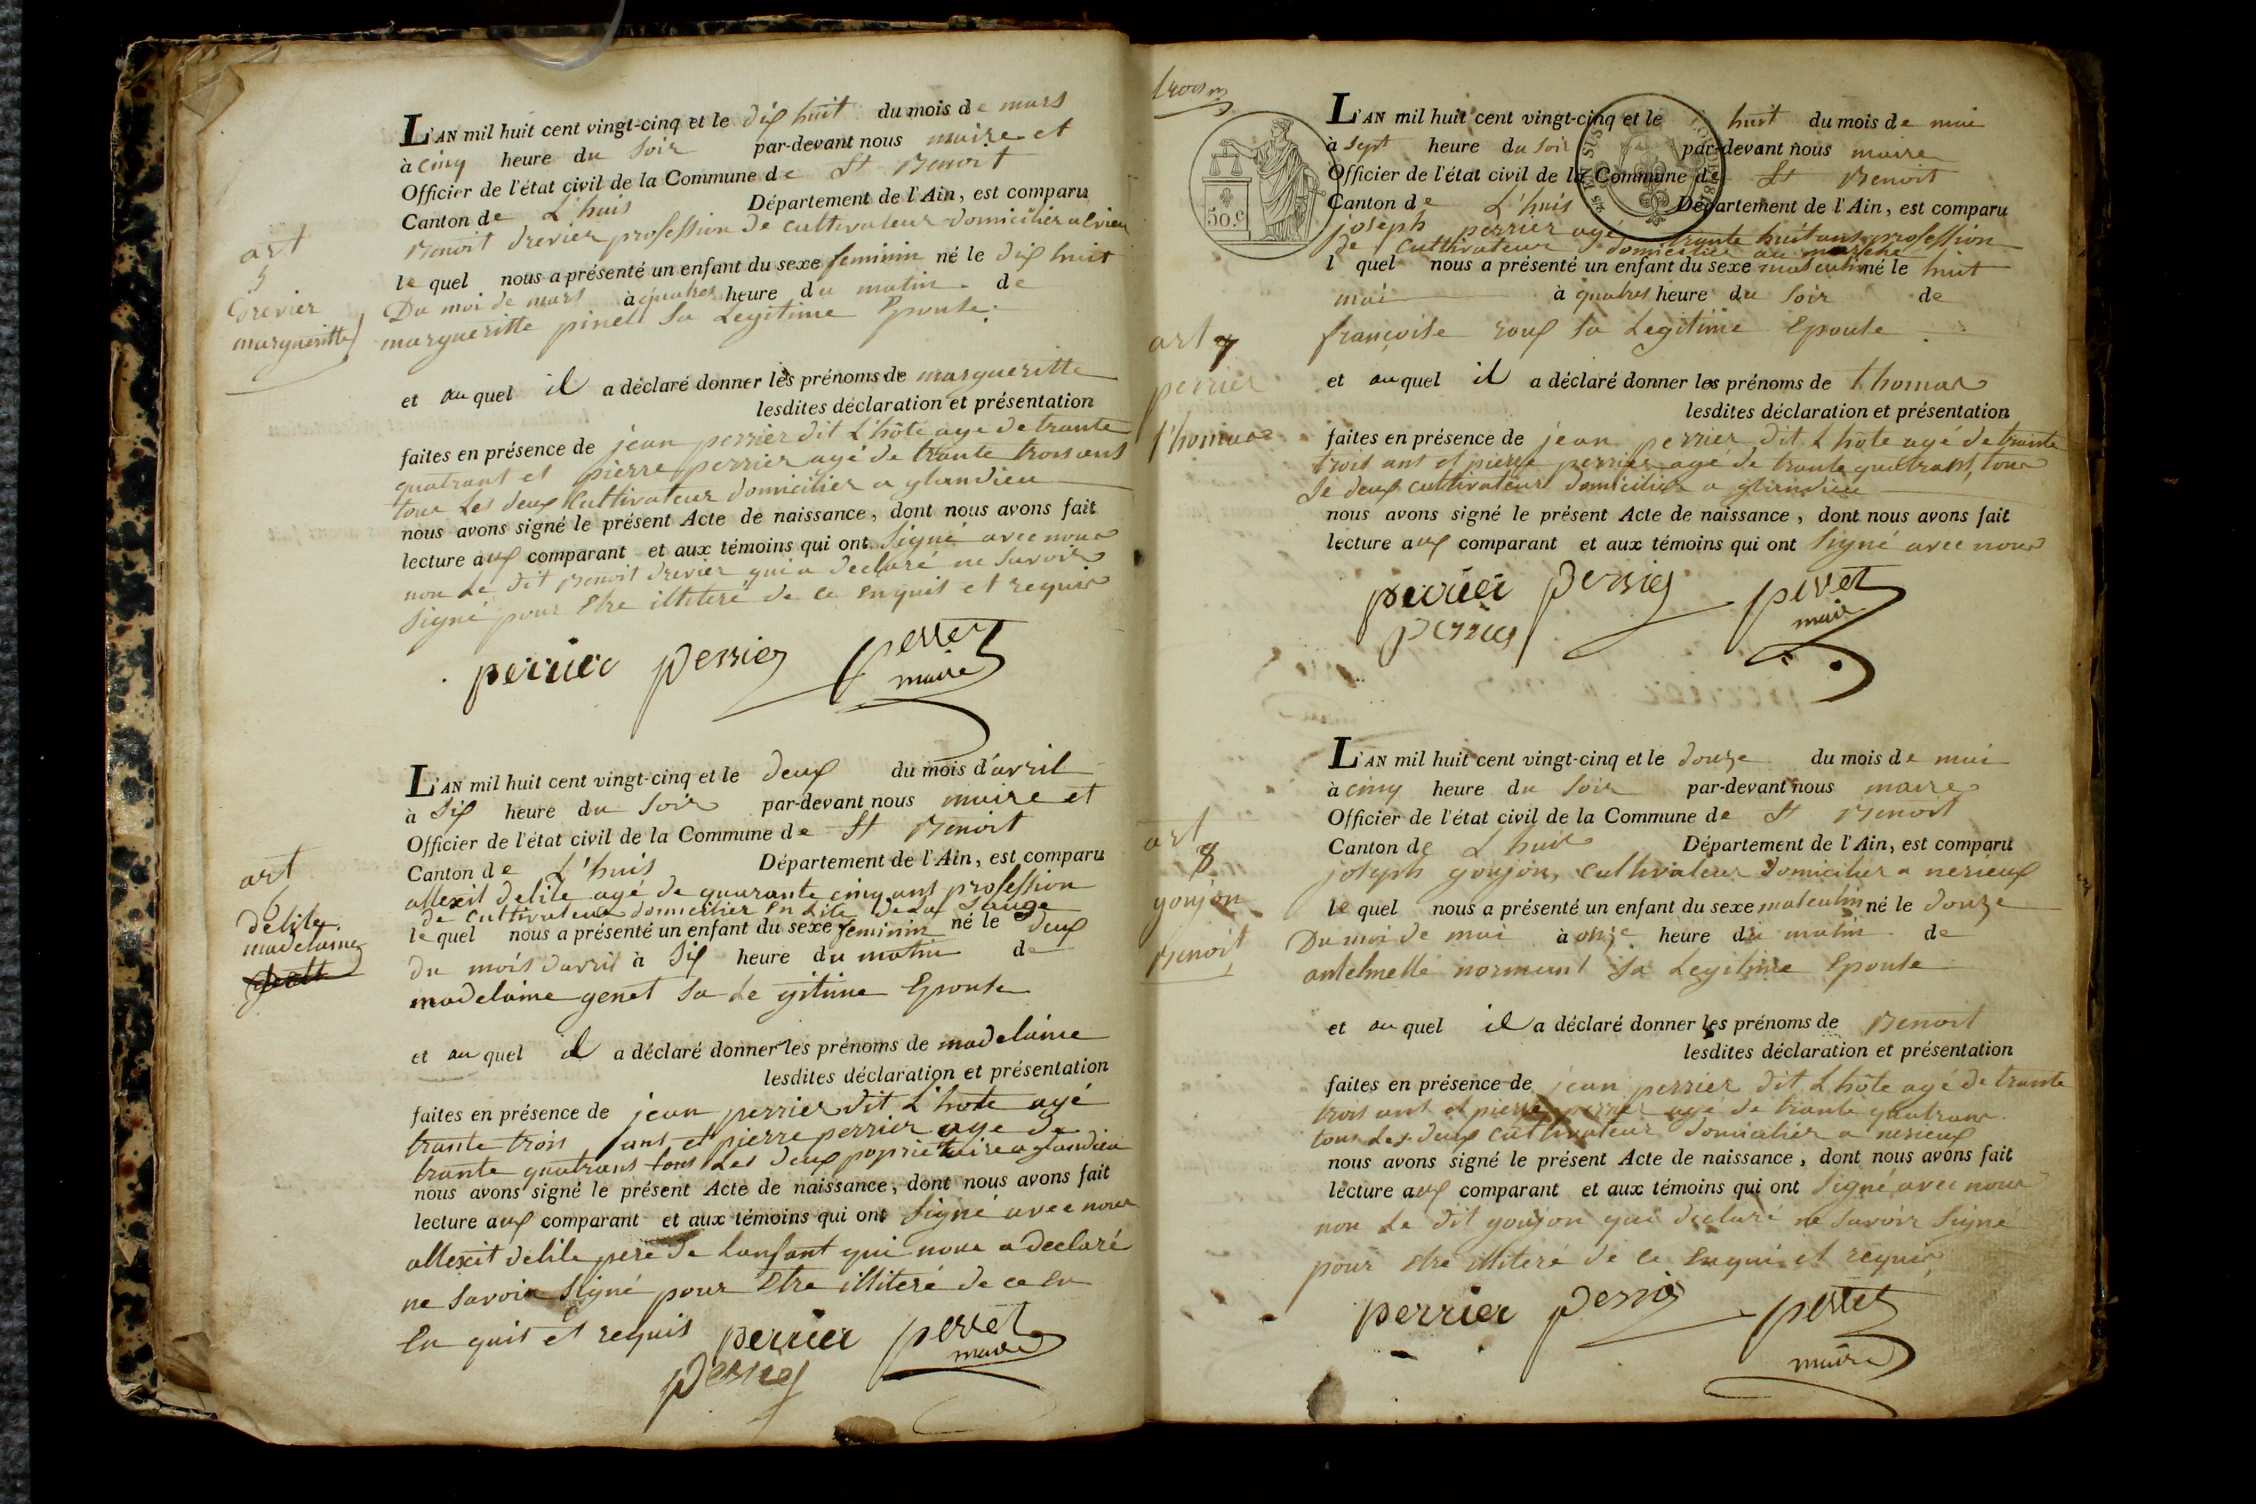 L'AN mil huit cent vingt-cinq et le dix huit du mois de mars
à cinq heure du soir par-devant nous maire et
Officier de l'état civil de la Commune de St Benoit
Canton de L'huis Département de l'Ain, est comparu
Benoit drevier profession de cultivateur domicilier a
le quel nous a présenté un enfant du sexe feminin né le dix huit
Du moi de mars à quatres heure du matin de
margueritte pinel sa Legitime Epouse
art
5
Drevier
margueritte
et au quel il a déclaré donner les prénoms de margueritte
lesdites déclaration et présentation
faites en présence de jean perrier dit L'hôte agé de trante
quatrant et pierre perrier agé de trante trois ans
tous Les deux Cultivateur domicilier a glandieu
nous avons signé le présent Acte de naissance, dont nous avons fait
lecture aux comparant et aux témoins qui ont signé avec nous
non Le dit Benoit drevier qui a declaré ne savoir
signé pour Etre illiteré de ce enquit et requis
perrier perrier perret
maire
L'AN mil huit cent vingt-cinq et le deux du mois d'avril
à six heure du soir par-devant nous maire et
Officier de l'état civil de la Commune de St Benoit
Canton de L'huis Département de l'Ain, est comparu
allexit delile agé de quarante cinq ans profession
de cultivateur domicilier en Lile de La Sauge
le quel nous a présenté un enfant du sexe feminin né le deux
du mois davril à six heure du matin de
madelaine genet sa Le gitime Epouse
art
6
delile
madelaine
et au quel il a déclaré donner les prénoms de madelaine
lesdites déclaration et présentation
faites en présence de jean perrier dit L'hote agé
trante trois ans et pierre perrier age de
trante quatrans tous Les deux poprietaire a glandieu
nous avons signé le présent Acte de naissance, dont nous avons fait
lecture aux comparant et aux témoins qui ont signé avec nous
allexit delile pere de Lanfant qui nous a declaré
ne savoir signé pour Etre illiteré de ce en
En quit et requis perrier perret
maire
perrier
50.c
L'AN mil huit cent vingt-cinq et le huit du mois de mai
à sept heure du soir par-devant nous maire
Officier de l'état civil de la Commune de St Benoit
Canton de L'huis Département de l'Ain, est comparu
joseph perrier agé trante huit ans profession
de Cultivateur domicilier au marche
l quel nous a présenté un enfant du sexe masculin né le huit
mai à quatres heure du soir de
françoise roux sa Legitime Epouse
art 7
perrier
thomas
et au quel il a déclaré donner les prénoms de thomas
lesdites déclaration et présentation
faites en présence de jean perrier dit L'hôte agé de trante
trois ans et pierre perrier agé de trante quatrans, tous
Le deux cultivateur domicilier a glandieu
nous avons signé le présent Acte de naissance, dont nous avons fait
lecture aux comparant et aux témoins qui ont signé avec nous
perrier perrier perret
perrier maire
L'AN mil huit cent vingt-cinq et le douze du mois de mai
à cinq heure du soir par-devant nous maire
Officier de l'état civil de la Commune de St Benoit
Canton de L'huis Département de l'Ain, est comparu
joseph goujon, cultivateur domicilier a nerieux
le quel nous a présenté un enfant du sexe masculin né le douze
Du moi de mai à onze heure du matin de
antelmette normant sa Legitime Epouse
art
8
goujon
Benoit
et au quel il a déclaré donner les prénoms de Benoit
lesdites déclaration et présentation
faites en présence de jean perrier dit L'hôte agé de trante
trois ans et pierre perrier agé de trante quatrans
tous Les deux cultivateur domicilier a nerieux
nous avons signé le présent Acte de naissance, dont nous avons fait
lecture aux comparant et aux témoins qui ont signé avec nous
non Le dit goujon qui declaré ne savoir signé
pour Etre illiteré de ce enqui et requis
perrier perrier perret
maire